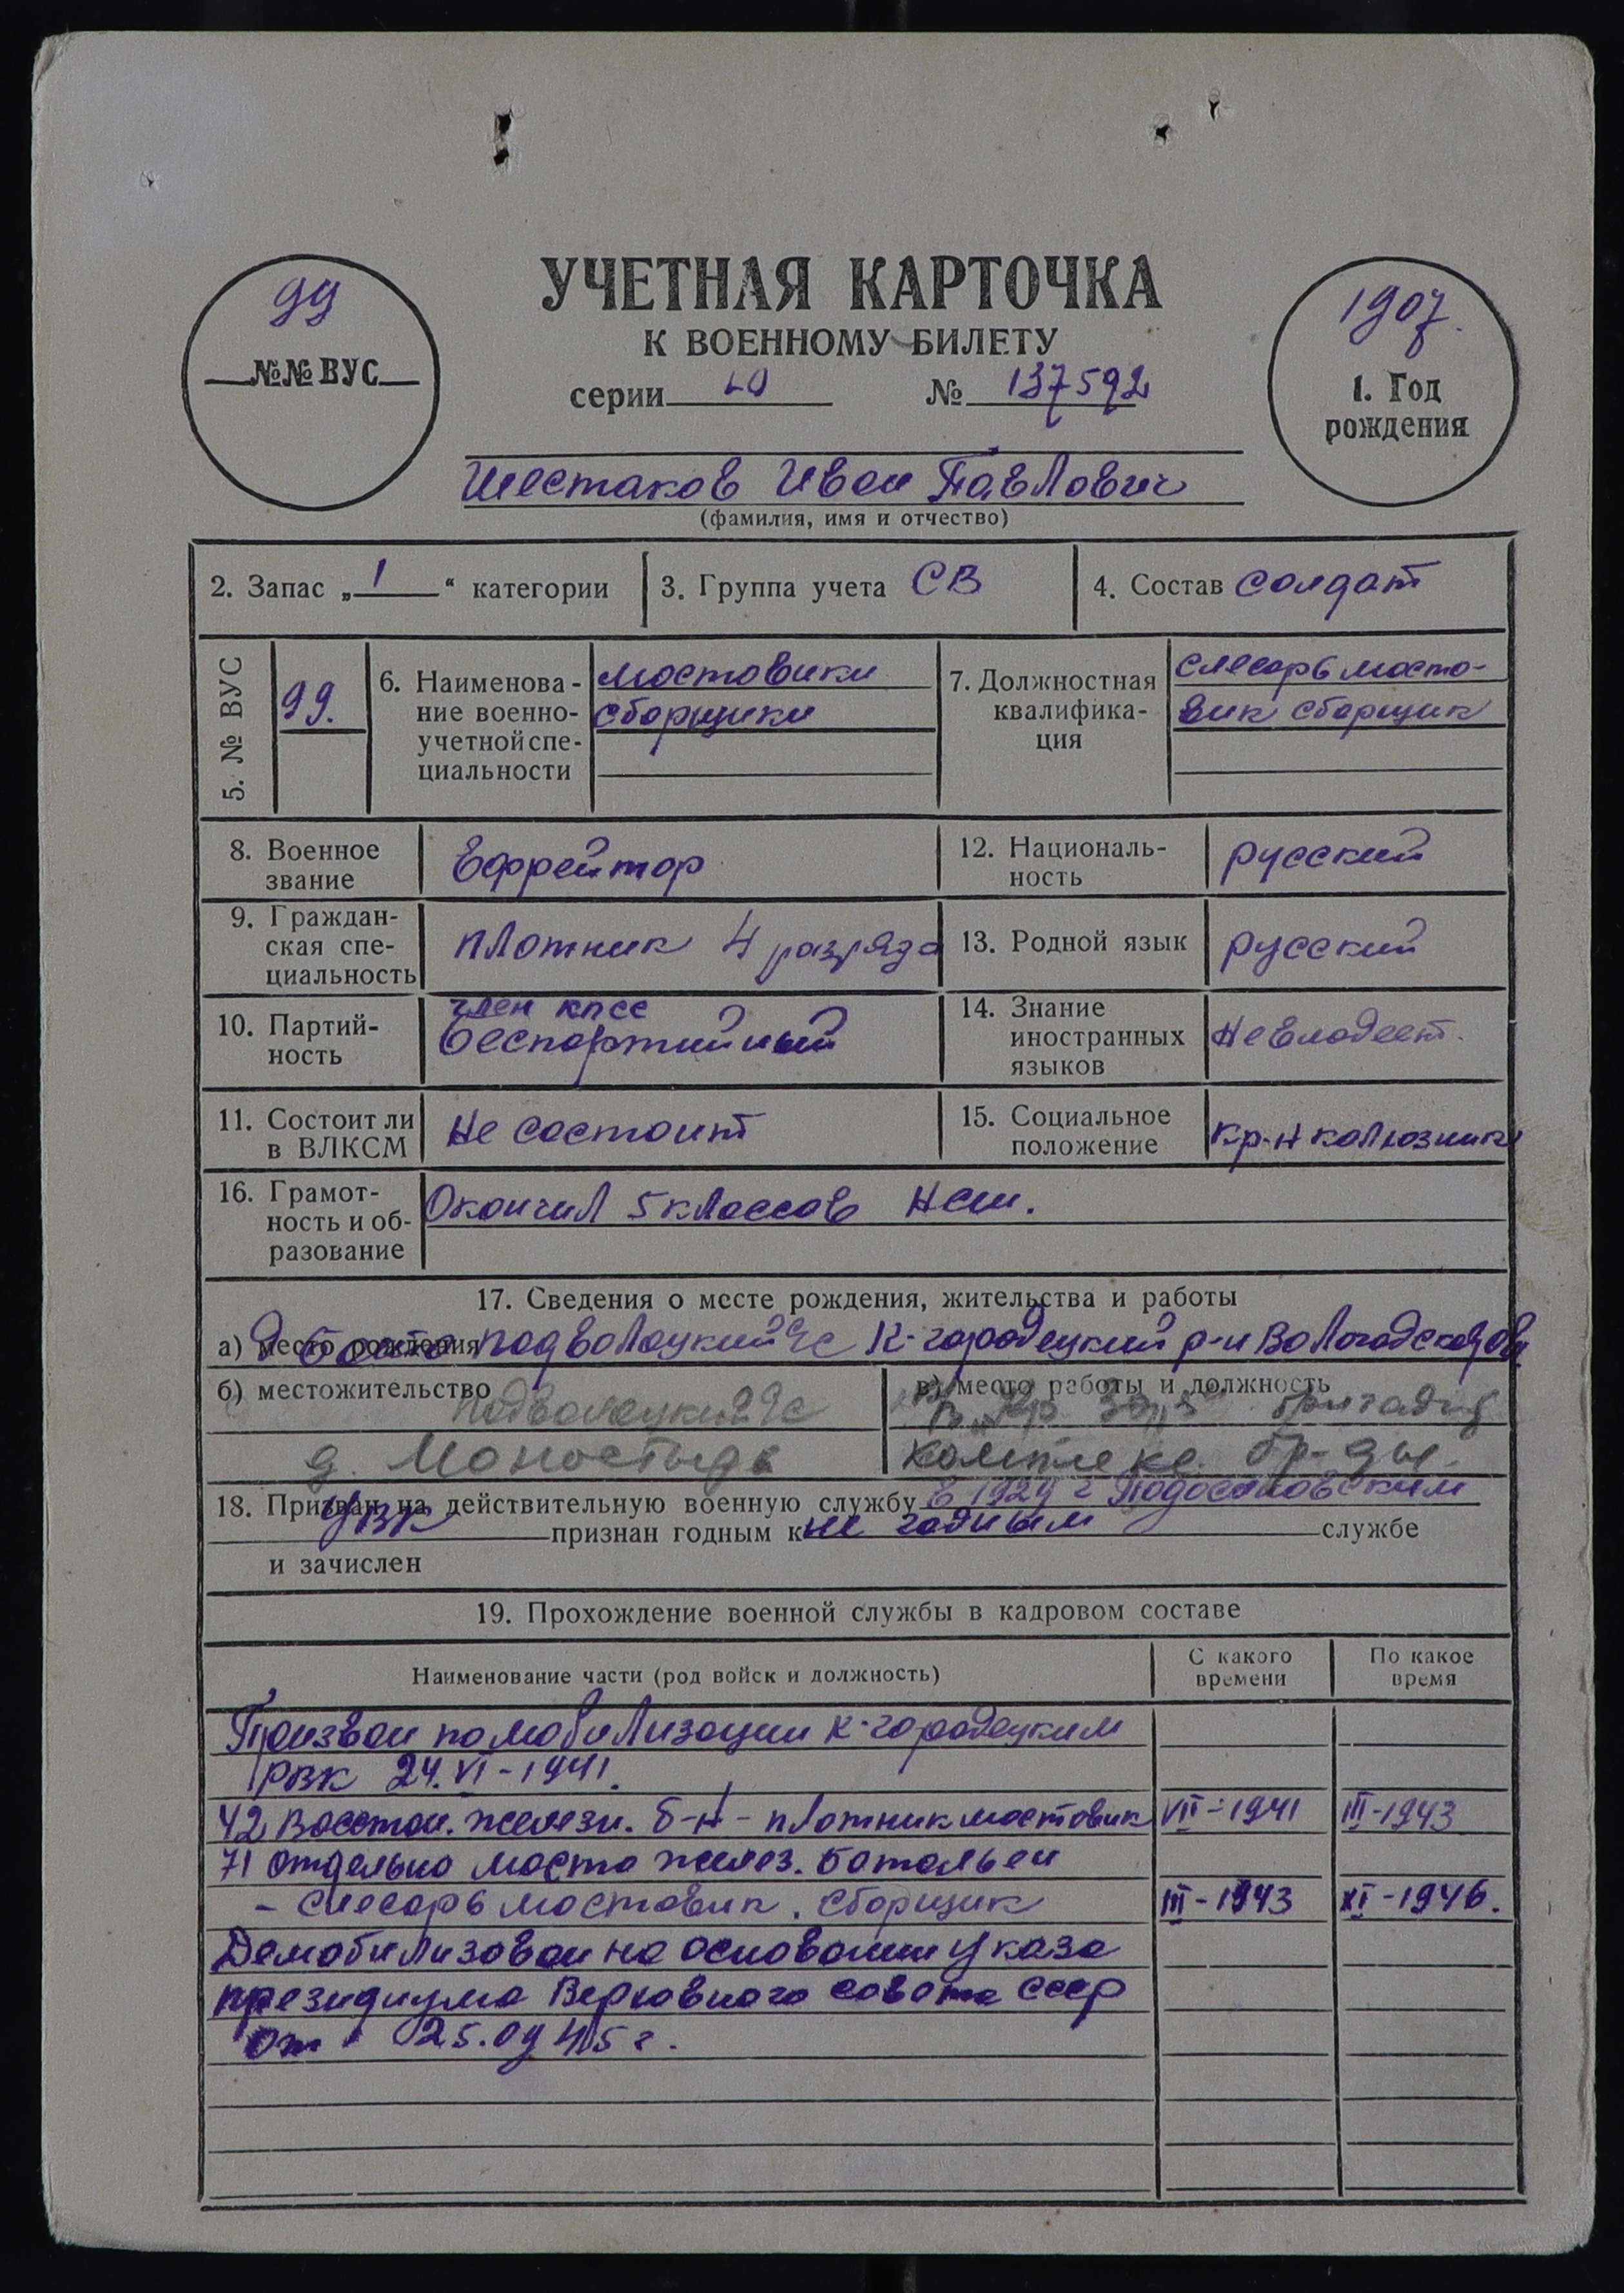 99
№№ ВУС
УЧЕТНАЯ КАРТОЧКА
К ВОЕННОМУ БИЛЕТУ
серии № 137592
1907.
1. Год
рождения
Шестаков Иван Павлович
(фамилия, имя и отчество)
2. Запас „1“ категории
3. Группа учета СВ
4. Состав солдат
5. № ВУС
99.
6. Наименова-
ние военно-
учетной спе-
циальности
мостовики
сборщики
7. Должностная
квалифика-
ция
слесарь мосто-
вик сборщик
8. Военное
звание
Ефрейтор
12. Националь-
ность
русский
9. Граждан-
ская спе-
циальность
плотник 4 разряда
13. Родной язык
русский
10. Партий-
ность
член кпсс
беспартийный
14. Знание
иностранных
языков
Не владеет.
11. Состоит ли
в ВЛКСМ
Не состоит
15. Социальное
положение
кр-н колхозник
16. Грамот-
ность и об-
разование
Окончил 5 классов Нсш.
17. Сведения о месте рождения, жительства и работы
а) место рождения Подволоцкий с/с К-городецкий р-н Вологодской обл.
б) местожительство
Подволоцкий с/с
д. Моностырь
в) место работы и должность
бригадир
комплекс. бр-ды.
18. Призван на действительную военную службу в 1929 г Подосиновским
УВК признан годным к не годным службе
и зачислен
19. Прохождение военной службы в кадровом составе
Наименование части (род войск и должность)
С какого
времени
По какое
время
Призван по мобилизации К-городецким
РВК 24.VI-1941.
42 Восстан. железн. б-н - плотник мостовик VII-1941 III-1943
71 отдельно мосто желез. батальен
- слесарь мостовик. сборщик III-1943 XI-1946.
Демобилизован на основании указа
президиума Верховного совета СССР
от 25.09 45 г.